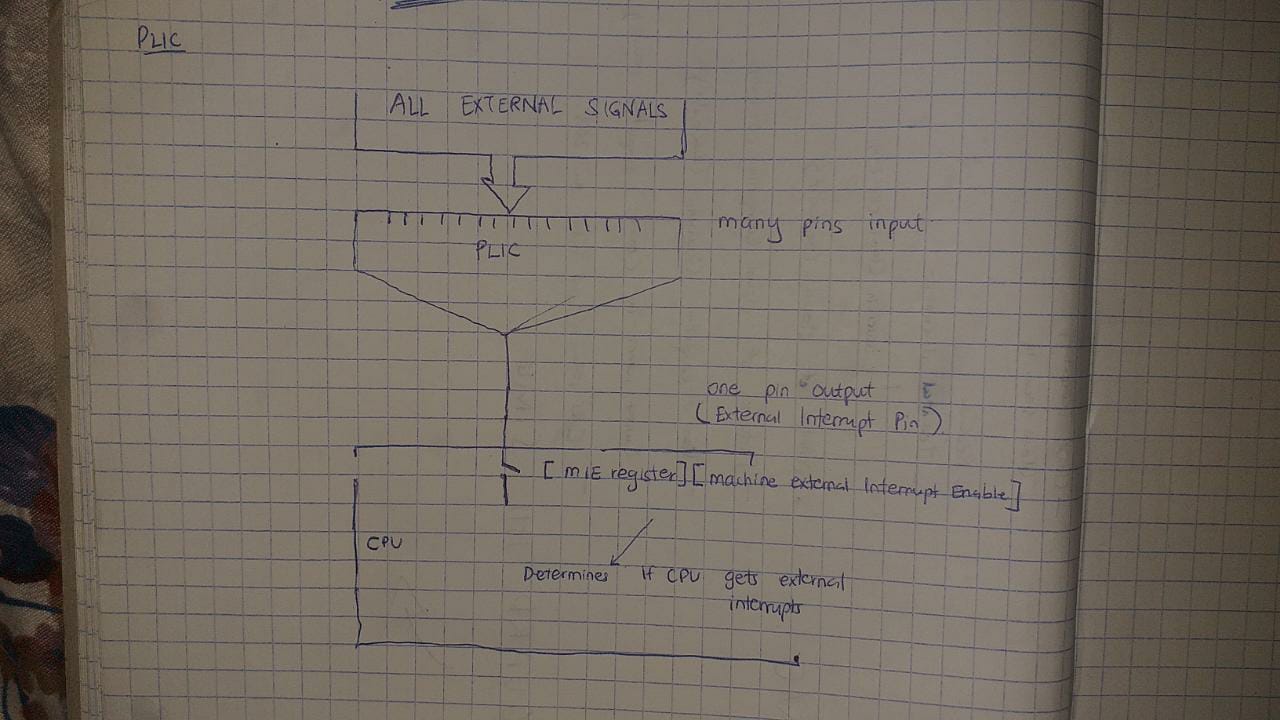 PLIC
ALL EXTERNAL SIGNALS
many pins input
PLIC
one pin output
(External Interrupt Pin)
[MIE register][machine external Interrupt Enable]
CPU
Determines if CPU gets external
interrupts